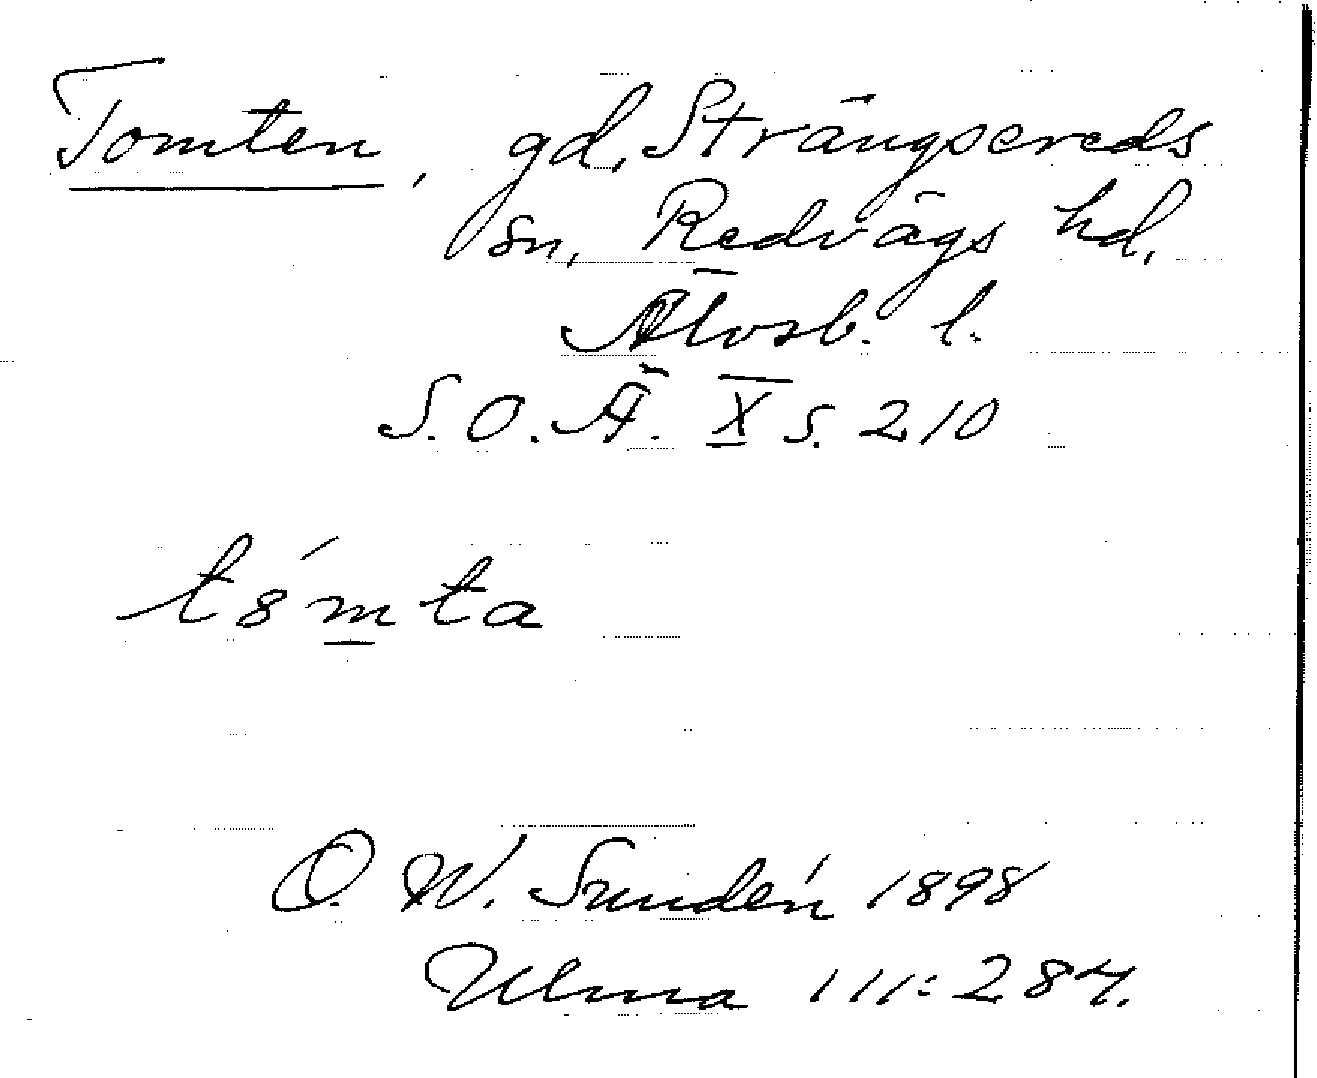 Tomten, gd, Strängsereds
sn, Redvägs hd,
Älvsb. l.
S.O.Ä. X s. 210
t8́mta
O. W. Sundén 1898
Ulma 111:284.